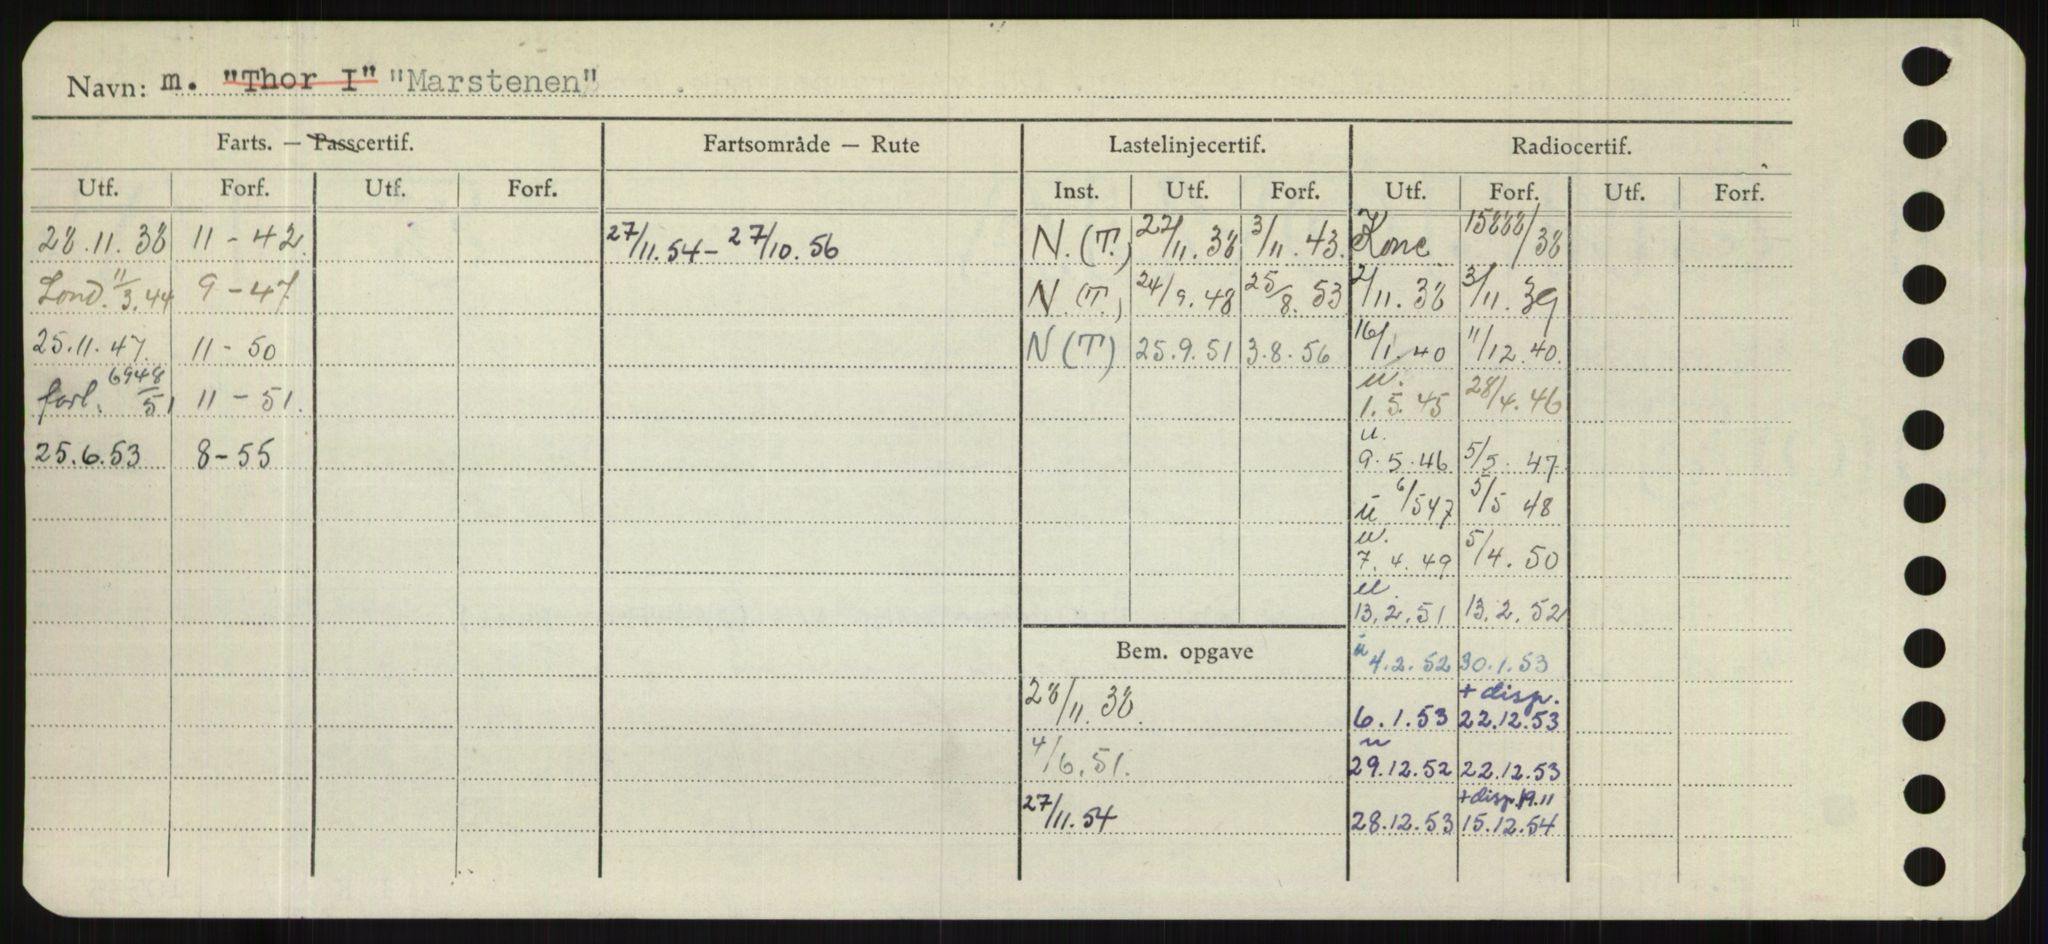 Navn: m. "Thor I" "Marstenen"
Farts. — Passcertif. Fartsområde — Rute Lastelinjecertif. Radiocertif.
Utf. Forf. Utf. Forf. Inst. Utf. Forf. Utf. Forf. Utf. Forf.
28.11.38 11-42. 27/11.54 - 27/10.56 N.(T.) 22/11.38 3/11.43. Konc. 15888/38
Lond. 11/3.44 9-47 N.(T.) 24/9.48 25/8.53 2/11.38 3/11.39
25.11.47. 11-50 N(T) 25.9.51 3.8.56 16/1.40 11/12.40.
forl. 6948/51 11-51. u. 1.5.45 28/4.46
25.6.53 8-55 u. 9.5.46 5/5.47
u 6/5 47 5/5 48
u. 7.4.49 5/4.50
u. 13.2.51 13.2.52
Bem. opgave u 4.2.52 30.1.53
28/11.38. 6.1.53 + disp. 22.12.53
4/6.51. u 29.12.52 22.12.53
27/11.54 28.12.53 + disp. 19.11 15.12.54